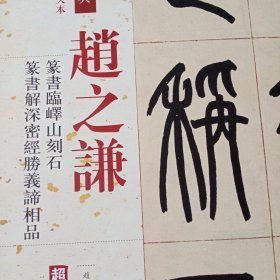 大本
趙之謙
篆書臨嶧山刻石
篆書解深密經勝義諦相品
超
趙
稱